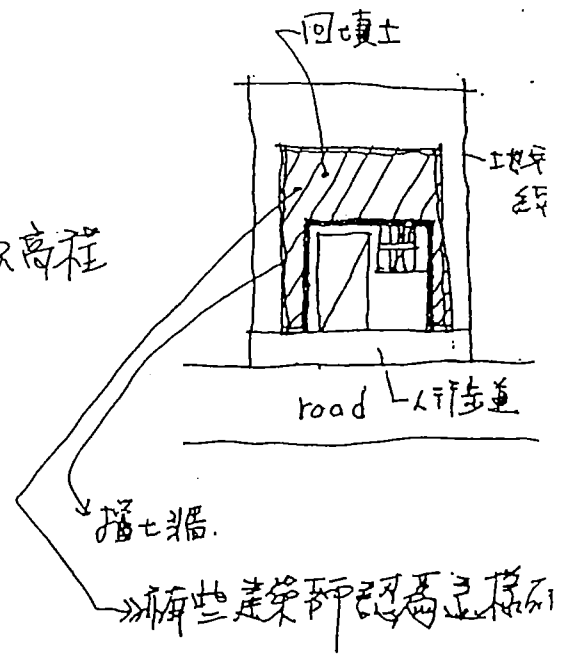 回填土
地界
線
高程
road
人行步道
擋土牆.
有些建築師認為這樣